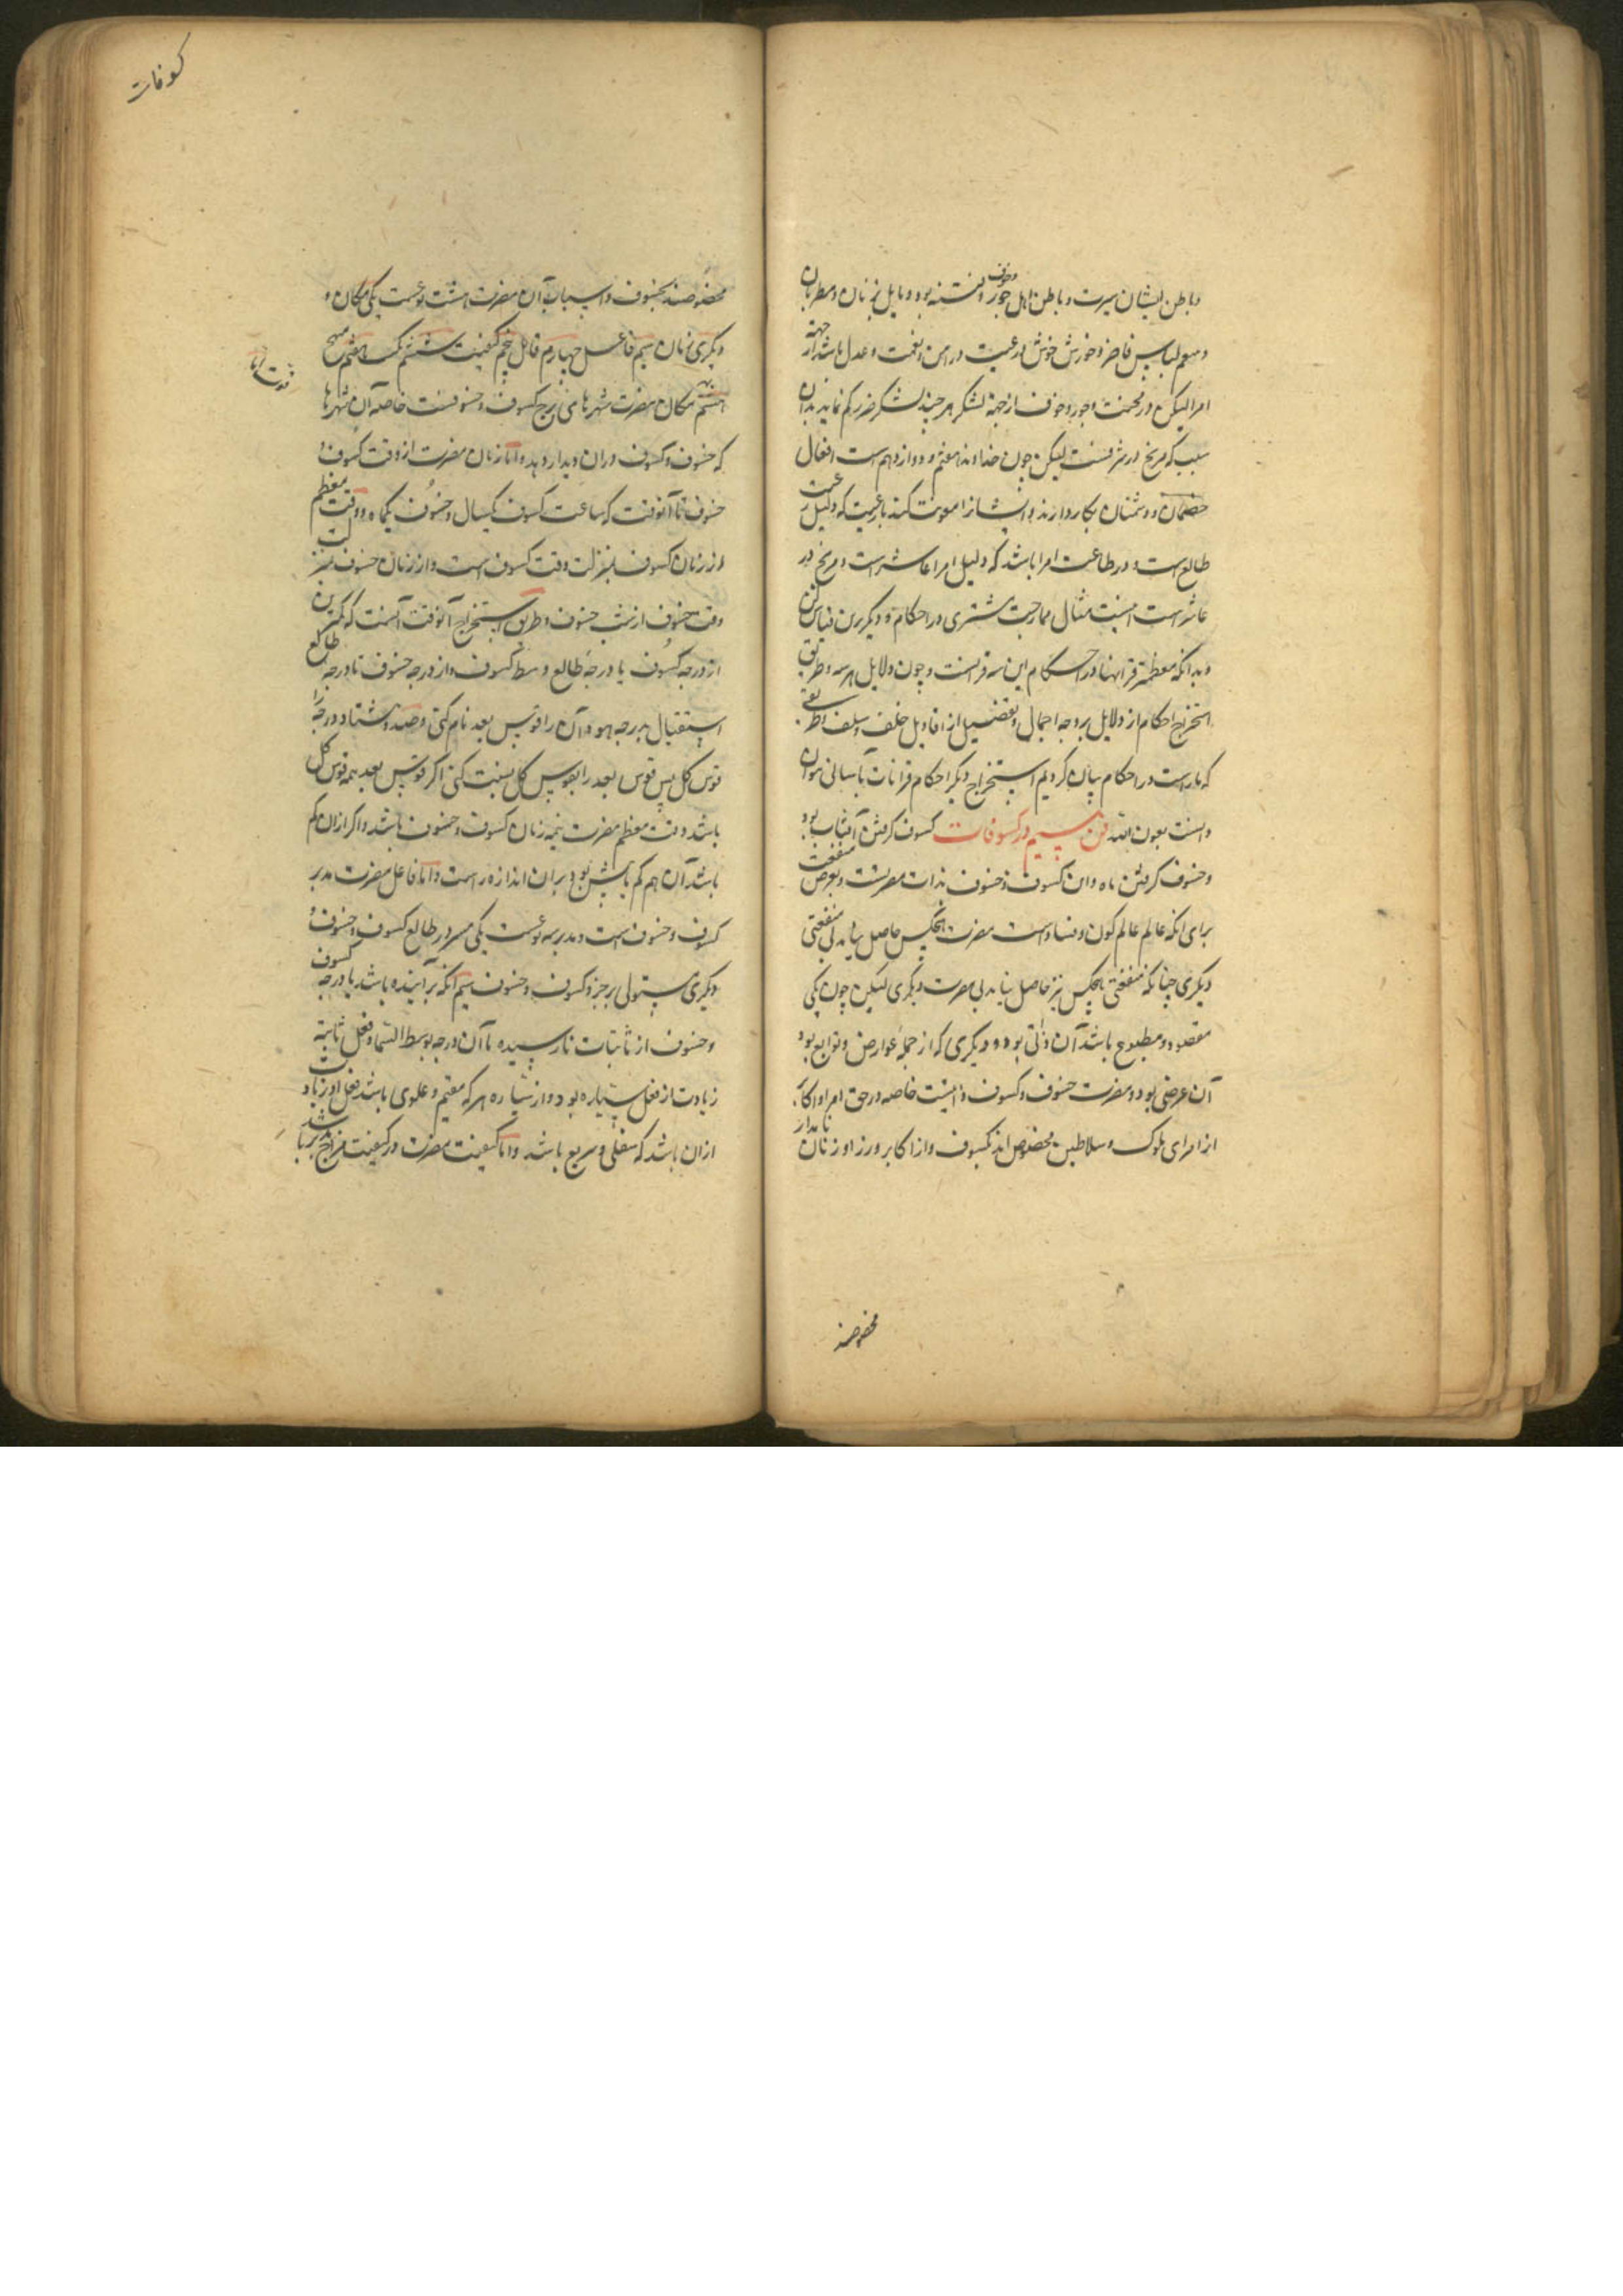 و باطن ایشان سیرت و باطن اهل جور و خوف و فتنه بود و مایل بزنان و مطربان
و میعم لباس فاخر و خورش خوش و رعیت در امن و نعمت و عدل باشد از جهة
امرا لیکن در محنت و جور و خوف از جهة لشکر هر چند لشکر ضرر کم نماید بدان
سبب که مریخ در شرفست لیکن چون خداوند هفتم و دوازدهم است افعال
خصمان و دشمنان بکار دارند و ایشانرا معونت کند با رعیت که دلیل رعیت
طالع است و در طاعت امرا باشد که دلیل امرا عاشر است و مریخ در
عاشر است اینست مثال ممازجت مشتری در احکام و دیگر برین قیاس کن
و بدانکه معظمتر قرانها در احکام این سه قرانست و چون دلایل هر سه و طریق
استخراج احکام از دلایل بر وجه اجمال و تفضیل از اقاویل خلف و سلف و طریقی
که ما راست در احکام بیان کردیم استخراج دیگر احکام قرانات بآسانی توان
دانست بعون الله فن سیم در کسوفات کسوف گرفتن آفتاب بود
و خسوف گرفتن ماه و این کسوف و خسوف بذات مضرتست و بعرض منفعت
برای انکه عالم عالم کون و فساد است مضرت هیچکس حاصل نیاید بی منفعتی
دیگری چنانکه منفعتی هیچکس نیز حاصل نیاید بی مضرت دیگری لیکن چون یکی
مقصود و مطبوع باشد آن ذاتی بود و دیگری که از جمله عوارض و توابع بود
آن عرضی بود و مضرت خسوف و کسوف ذاتیست خاصه در حق امرا و اکابر
از امرای ملوک و سلاطین مخصوص اند بکسوف و از اکابر وزرا و زنان نامدار
مخصوصند
کسوفات
مخصوصند بخسوف و اسباب آن مضرت هشت نوعست یکی مکان و
دیگری زمان سیم فاعل چهارم قابل پنجم کیفیت ششم کمیت هفتم مهیج
هشتم نهم مکان مضرت شهرهای برج کسوف و خسوفست خاصه آن شهرها
که خسوف و کسوف در آن دیدار دهد و اما زمان مضرت از وقت کسوف و
خسوف تا آنوقت که ساعت کسوف یکسال و خسوف یکماه و وقت معظم
از زمان کسوف بمنزلت وقت کسوف است و از زمان خسوف بمنزلت
وقت خسوف از شب خسوف و طریق استخراج آنوقت آنست که کمترین
از درجه کسوف یا درجه طالع وسط کسوف و از درجه خسوف تا درجه طالع
استقبال بدرجه سوا و آن را قوس بعد نام کنی و صد و هشتاد درجه را
قوس کل پس قوس بعد را بقوس کل نسبت کنی اگر قوس بعد نیمه قوس کل
باشد وقت معظم مضرت نیمه زمان کسوف و خسوف باشد و اگر از آن کم
باشد آن هم کم یا بیش بود بران اندازه راست و اما فاعل مضرت مدبر
کسوف و خسوف است و مدبر سه نوعست یکی مدبر طالع کسوف و خسوف و
دیگری مستولی بر جزو کسوف و خسوف سیم آنکه بر آینده باشد با درجه کسوف
و خسوف از ثابتات تا رسیده تا آن درجه بوسط السما و فعل ثابته
زیادت از فعل سیاره بود و از سیاره هر که مقیم و علوی باشد فعل او زیادت
از آن باشد که سفلی و سریع باشد و اما کیفیت مضرت در کیفیت مزاج مدبر باشد